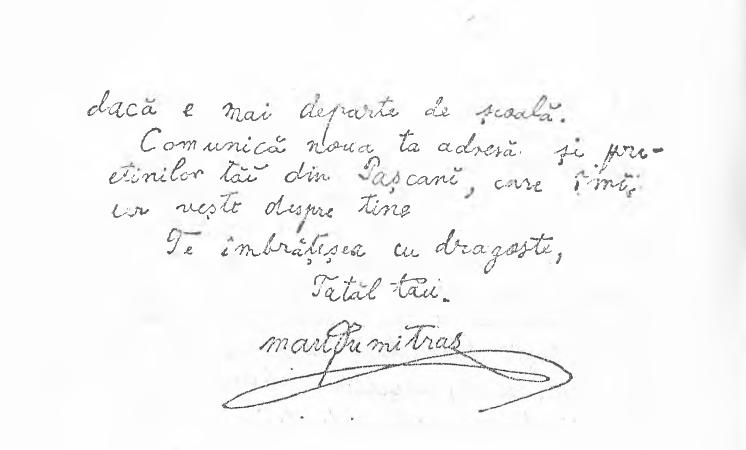 dacă e mai departe de școală.
Comunică noua ta adresă și pri-
etinilor tăi din Pașcani, care îmi
cer vești despre tine
Te îmbrățișea cu dragoste,
Tatăl tău.
Dumitras